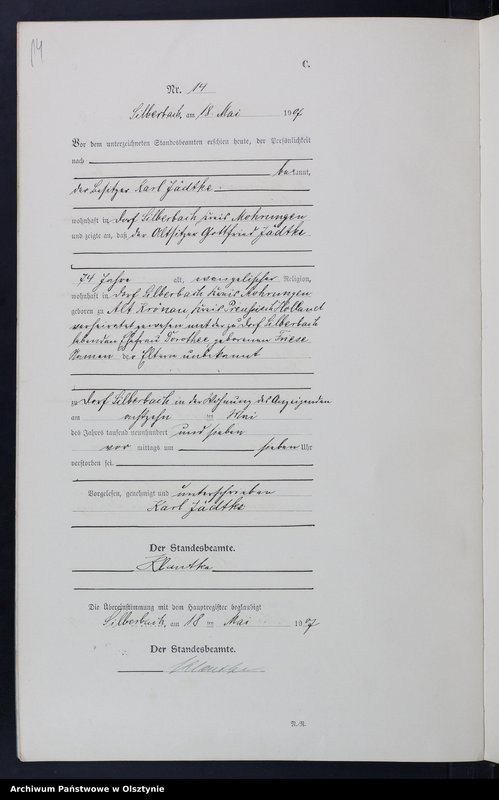 14
C.
Nr. 14
Silberbach, am 18. Mai 1907
Vor dem unterzeichneten Standesbeamten erschien heute, der Persönlichkeit
nach
bekannt,
der Besitzer Karl Jädtke
wohnhaft in Dorf Silberbach Kreis Mohrungen
und zeigte an, daß der Altsitzer Gottfried Jädtke
74 Jahre alt, evangelischer Religion,
wohnhaft in Dorf Silberbach Kreis Mohrungen
geboren zu Alt Kronau Kreis Preußisch Holland
verheiratet gewesen mit der zu Dorf Silberbach
lebenden Ehefrau Dorothee geborenen Friese
Namen der Eltern unbekannt
zu Dorf Silberbach in der Wohnung des Anzeigenden
am achtzehn ten Mai
des Jahres tausend neunhundert und sieben
vor mittags um sieben Uhr
verstorben sei.
Vorgelesen, genehmigt und unterschrieben
Karl Jädtke
Der Standesbeamte.
Klautke
Die Übereinstimmung mit dem Hauptregister beglaubigt
Silberbach, am 18 ten Mai 1907
Der Standesbeamte.
Klautke
N.-R.
Archiwum Państwowe w Olsztynie